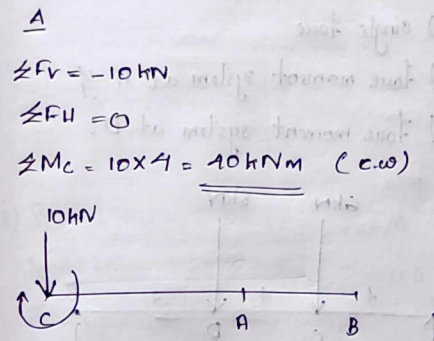 A
ΣFv = -10 kN
ΣFH = 0
ΣMc = 10×4 = 40 kNm (C.W)
10 kN
C A B